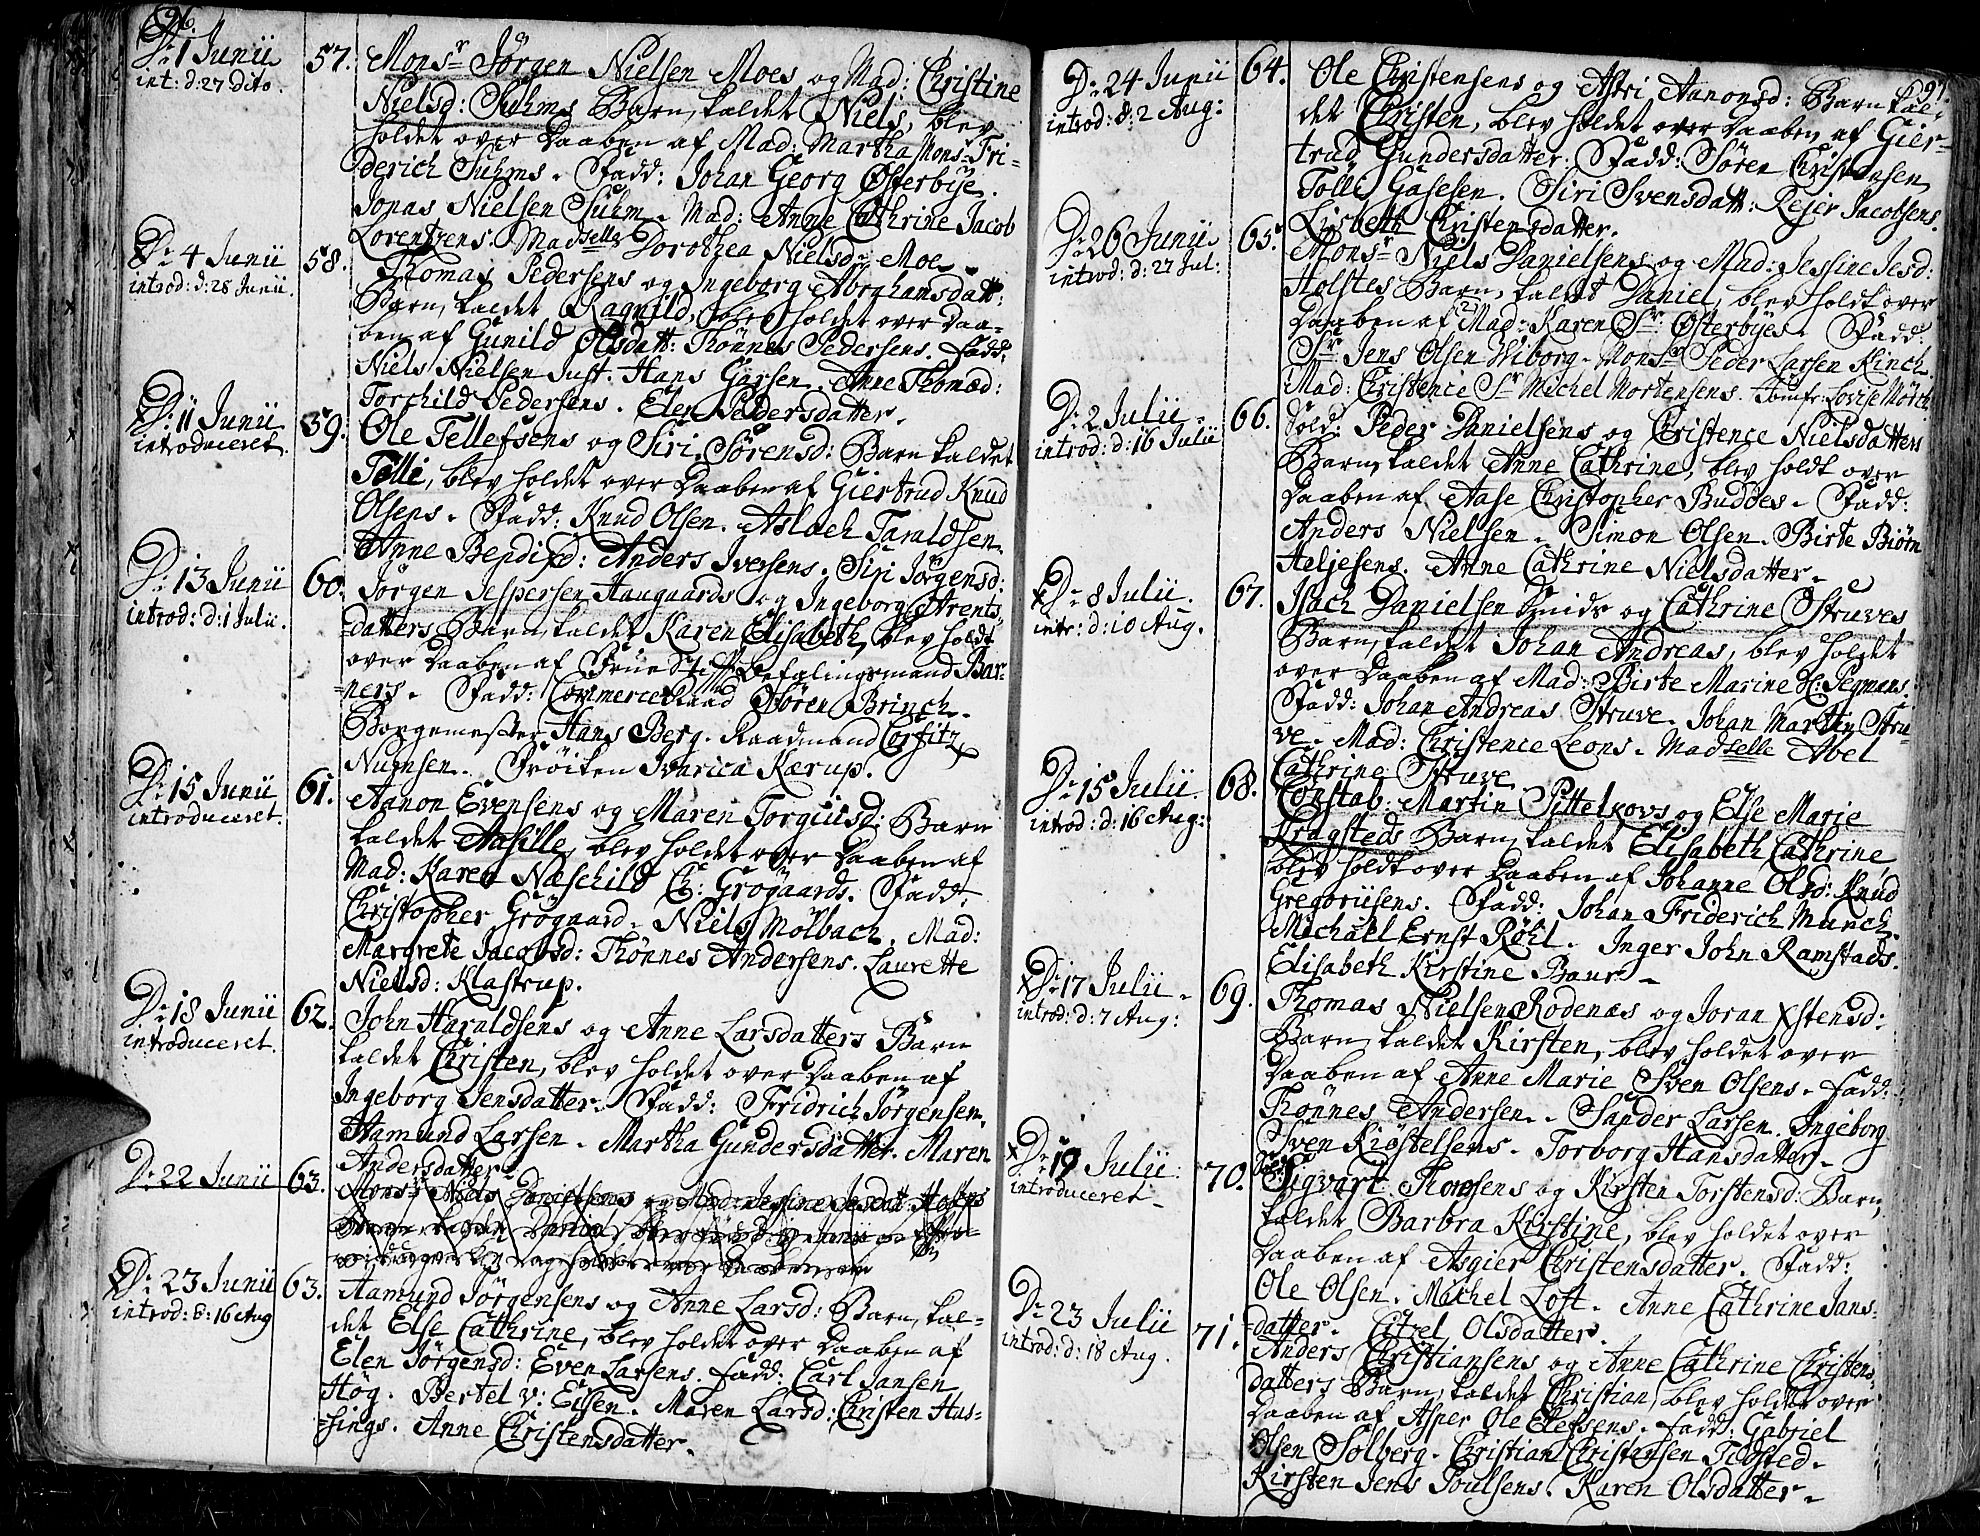 96.
D: 1 Junii
int: d: 27 dito.
57. Monsr Jörgen Nielsen Moes og Mad: Christine
Nielsd: Suhms Barn, kaldet Niels, blev
holdet over Daaben af Mad: Martha Monsr Fri-
derich Suhms. Fadd: Johan Georg Österbye.
Jonas Nielsen Suhm. Mad: Anne Cathrine Jacob
Lorentzens. Madselle Dorothea Nielsdr Moe.
D: 4 Junii
introd: d: 28 Junii.
58. Thomas Pedersens og Ingeborg Abrahamsdatt:
Barn, kaldet Ragnild, blev holdet over Daa-
ben af Gunild Olsdatt: Thönnes Pedersens. Fadd:
Niels Nielsen Just. Hans Garsen. Anne Thomæd:
Torchild Pedersens. Elen Pedersdatter.
D: 11 Junii
introduceret.
59. Ole Tellefsens og Siri Sörensd: Barn kaldet
Tolli, blev holdet over Daaben af Giertrud Knud
Olsens. Fadd: Knud Olsen. Aslach Taraldsen.
Anne Bendixd: Anders Iversens. Siri Jörgensd:
D: 13 Junii
introd: d: 1 Julii.
60. Jörgen Jespersen Hauguards og Ingeborg Arents-
datters Barn, kaldet Karen Elisabeth, blev holdt
over Daaben af Frue Stift Befalingsmand Bar-
ners. Fadd: Commerceraad Sören Brinch.
Borgemester Hans Berg. Raadmand Corfitz
Numsen. Fröiken Ivarica Kærup.
D: 15 Junii
introduceret.
61. Aanon Evensens og Maren Torgiusd: Barn
kaldet Aasille, blev holdet over Daaben af
Mad: Karen Næschild C: Grögaards. Fadd:
Christopher Grögaard. Niels Mölbach. Mad:
Margrete Jacobsd: Thönnes Andersens. Laurette
Nielsd: Klastrup.
D: 18 Junii
introduceret.
62. John Haraldsens og Anne Larsdatters Barn
kaldet Christen, blev holdet over Daaben af
Ingeborg Jensdatter. Fadd: Fridrich Jörgensen.
Aamund Larsen. Martha Gundersdatter. Maren
Andersdatter.
D: 22 Junii
63. Monsr Niels Danielsens og Mad: Jessine Jesdatt: Holstes
D: 23 Junii
introd: d: 16 Aug
63. Aamund Jörgensens og Anne Larsd: Barn, kal-
det Else Cathrine, blev holdet over Daaben af
Elen Jörgensd: Even Larsens. Fadd: Carl Jansen
Hög. Bertel v: Eissen. Maren Larsd: Christen Hus-
sings. Anne Christensdatter.
97.
D: 24 Junii
introd: d: 2 Aug:
64. Ole Christensens og Astri Aanonsd: Barn kal-
det Christen, blev holdet over Daaben af Gier-
trud Gundersdatter. Fadd: Sören Christensen
Tolli Gasesen. Siri Svensdatt: Rejer Jacobsens.
Lisbeth Christensdatter.
D: 26 Junii
introd: d: 27 Jul:
65. Monsr Niels Danielsens og Mad: Jessine Jesd:
Holstes Barn, kaldet Daniel, blev holdt over
Daaben af Mad: Karen Sr: Österbyes. Fadd:
Sr: Jens Olsen Wiborg. Monsr Peder Larsen Kinch.
Mad: Christence Sr Michel Mortensens. Jomfr: Lovise Mörch
D: 2 Julii
introd: d: 16 Julii
66. Sold: Peder Danielsens og Christence Nielsdatters
Barn, kaldet Anne Cathrine, blev holdt over
Daaben af Aase Christopher Buddes. Fadd:
Anders Nielsen. Simon Olsen. Birte Biörn
Aeljesens. Anne Cathrine Nielsdatter.
D: 8 Julii.
intr: d: 10 Aug.
67. Isach Danielsen Smids og Cathrine Struves
Barn, kaldet Johan Andreas, blev holdet
over Daaben af Mad: Birte Marine H: Segmans.
Fadd: Johan Andreas Struve. Johan Martin Stru-
ve. Mad: Christence Leons. Madselle Abel
Cathrine Struve.
D: 15 Julii
introd: d: 16 Aug:
68. Constab: Martin Pittelkovs og Else Marie
Kragsteds Barn, kaldet Elisabeth Cathrine,
blev holdt over Daaben af Johanne Olsd: Knud
Gregoriisens. Fadd: Johan Friderich Munch.
Michael Ernst Röhl. Inger John Ramstads.
Elisabeth Kirstine Baur.
D: 17 Julii
introd: d: 7 Aug:
69. Thomas Nielsen Rodenæs og Joran Xstensd:
Barn, kaldet Kirsten, blev holdet over
Daaben af Anne Marie Sven Olsens. Fadd:
Thönnes Andersen. Sander Larsen. Ingeborg
Sven Kiöstelsens. Torborg Hansdatter.
D: 19 Julii.
introduceret
70. Sold: Sigvart Thorsens og Kirsten Torstensd: Barn,
kaldet Barbra Kirstine, blev holdet over
Daaben af Asgier Christensdatter. Fadd:
Ole Olsen. Michel Loft. Anne Cathrine Jans-
datter. Citzel Olsdatter.
D: 23 Julii
introd: d: 18 Aug.
71. Anders Christiansens og Anne Cathrine Christens-
datters Barn, kaldet Christian, blev holdet over
Daaben af Asper Ole Elefsens. Fadd: Gabriel
Olsen Solberg. Christian Christensen Tidsted.
Kirsten Jens Poulsens. Karen Olsdatter.